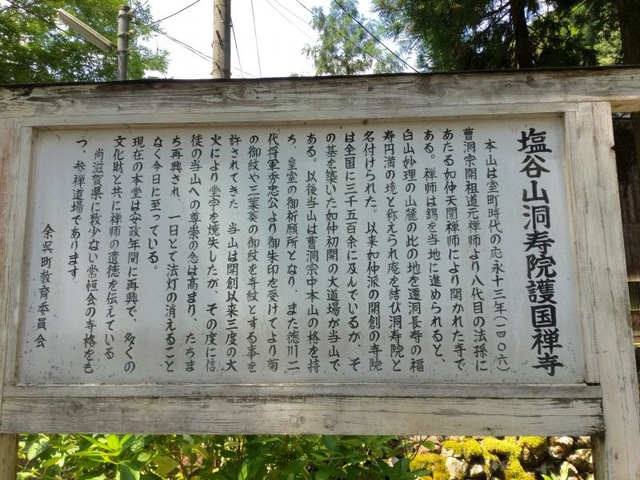 塩谷山洞寿院護国禅寺
本山は室町時代の応永十三年(一四〇六)
曹洞宗開祖道元禅師より八代目の法孫に
あたる如仲天誾禅師により開かれた寺で
ある。禅師は錫を当地に進められると、
白山妙理の山麓の此の地を遷洞長寿の福
寿円満の境と称えられ庵を結び洞寿院と
名付けられた。以来如仲派の開創の寺院
は全国に三千五百余に及んでいるが、そ
の基を築いた如仲初開の大道場が当山で
ある。以後当山は曹洞宗中本山の格を持
ち、皇室の御祈願所となり、また徳川二
代将軍秀忠公より御朱印を受けてより菊
の御紋や三葉葵の御紋を寺紋とする事を
許されてきた。当山は開創以来三度の大
火により堂宇を焼失したが、その度に信
徒の当山への尊崇の念は高まり、たちま
ち再興され、一日とて法灯の消えること
なく今日に至っている。
現在の本堂は安政年間に再興で、多くの
文化財と共に禅師の遺徳を伝えている
尚滋賀県に数少ない常恒会の寺格をも
つ、参禅道場であります。
余呉町教育委員会